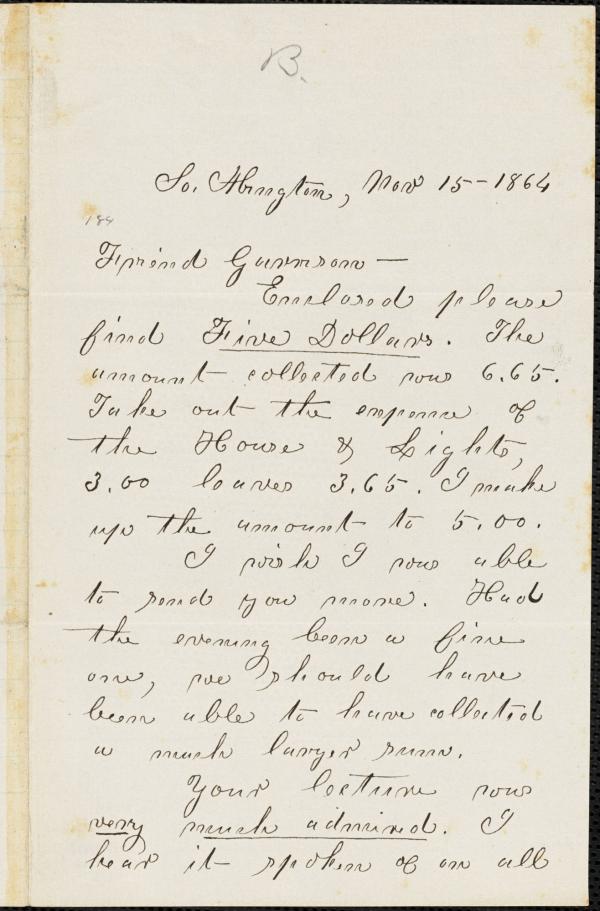 B.
So. Abington, Nov 15-1864
184
Friend Garrison—
Enclosed please
find Five Dollars. The
amount collected was 6.65.
Take out the expense of
the House & Lights,
3.00 leaves 3.65. I make
up the amount to 5.00.
I wish I was able
to send you more. Had
the evening been a fine
one, we should have
been able to have collected
a much larger sum.
Your lecture was
very much admired. I
hear it spoken of on all